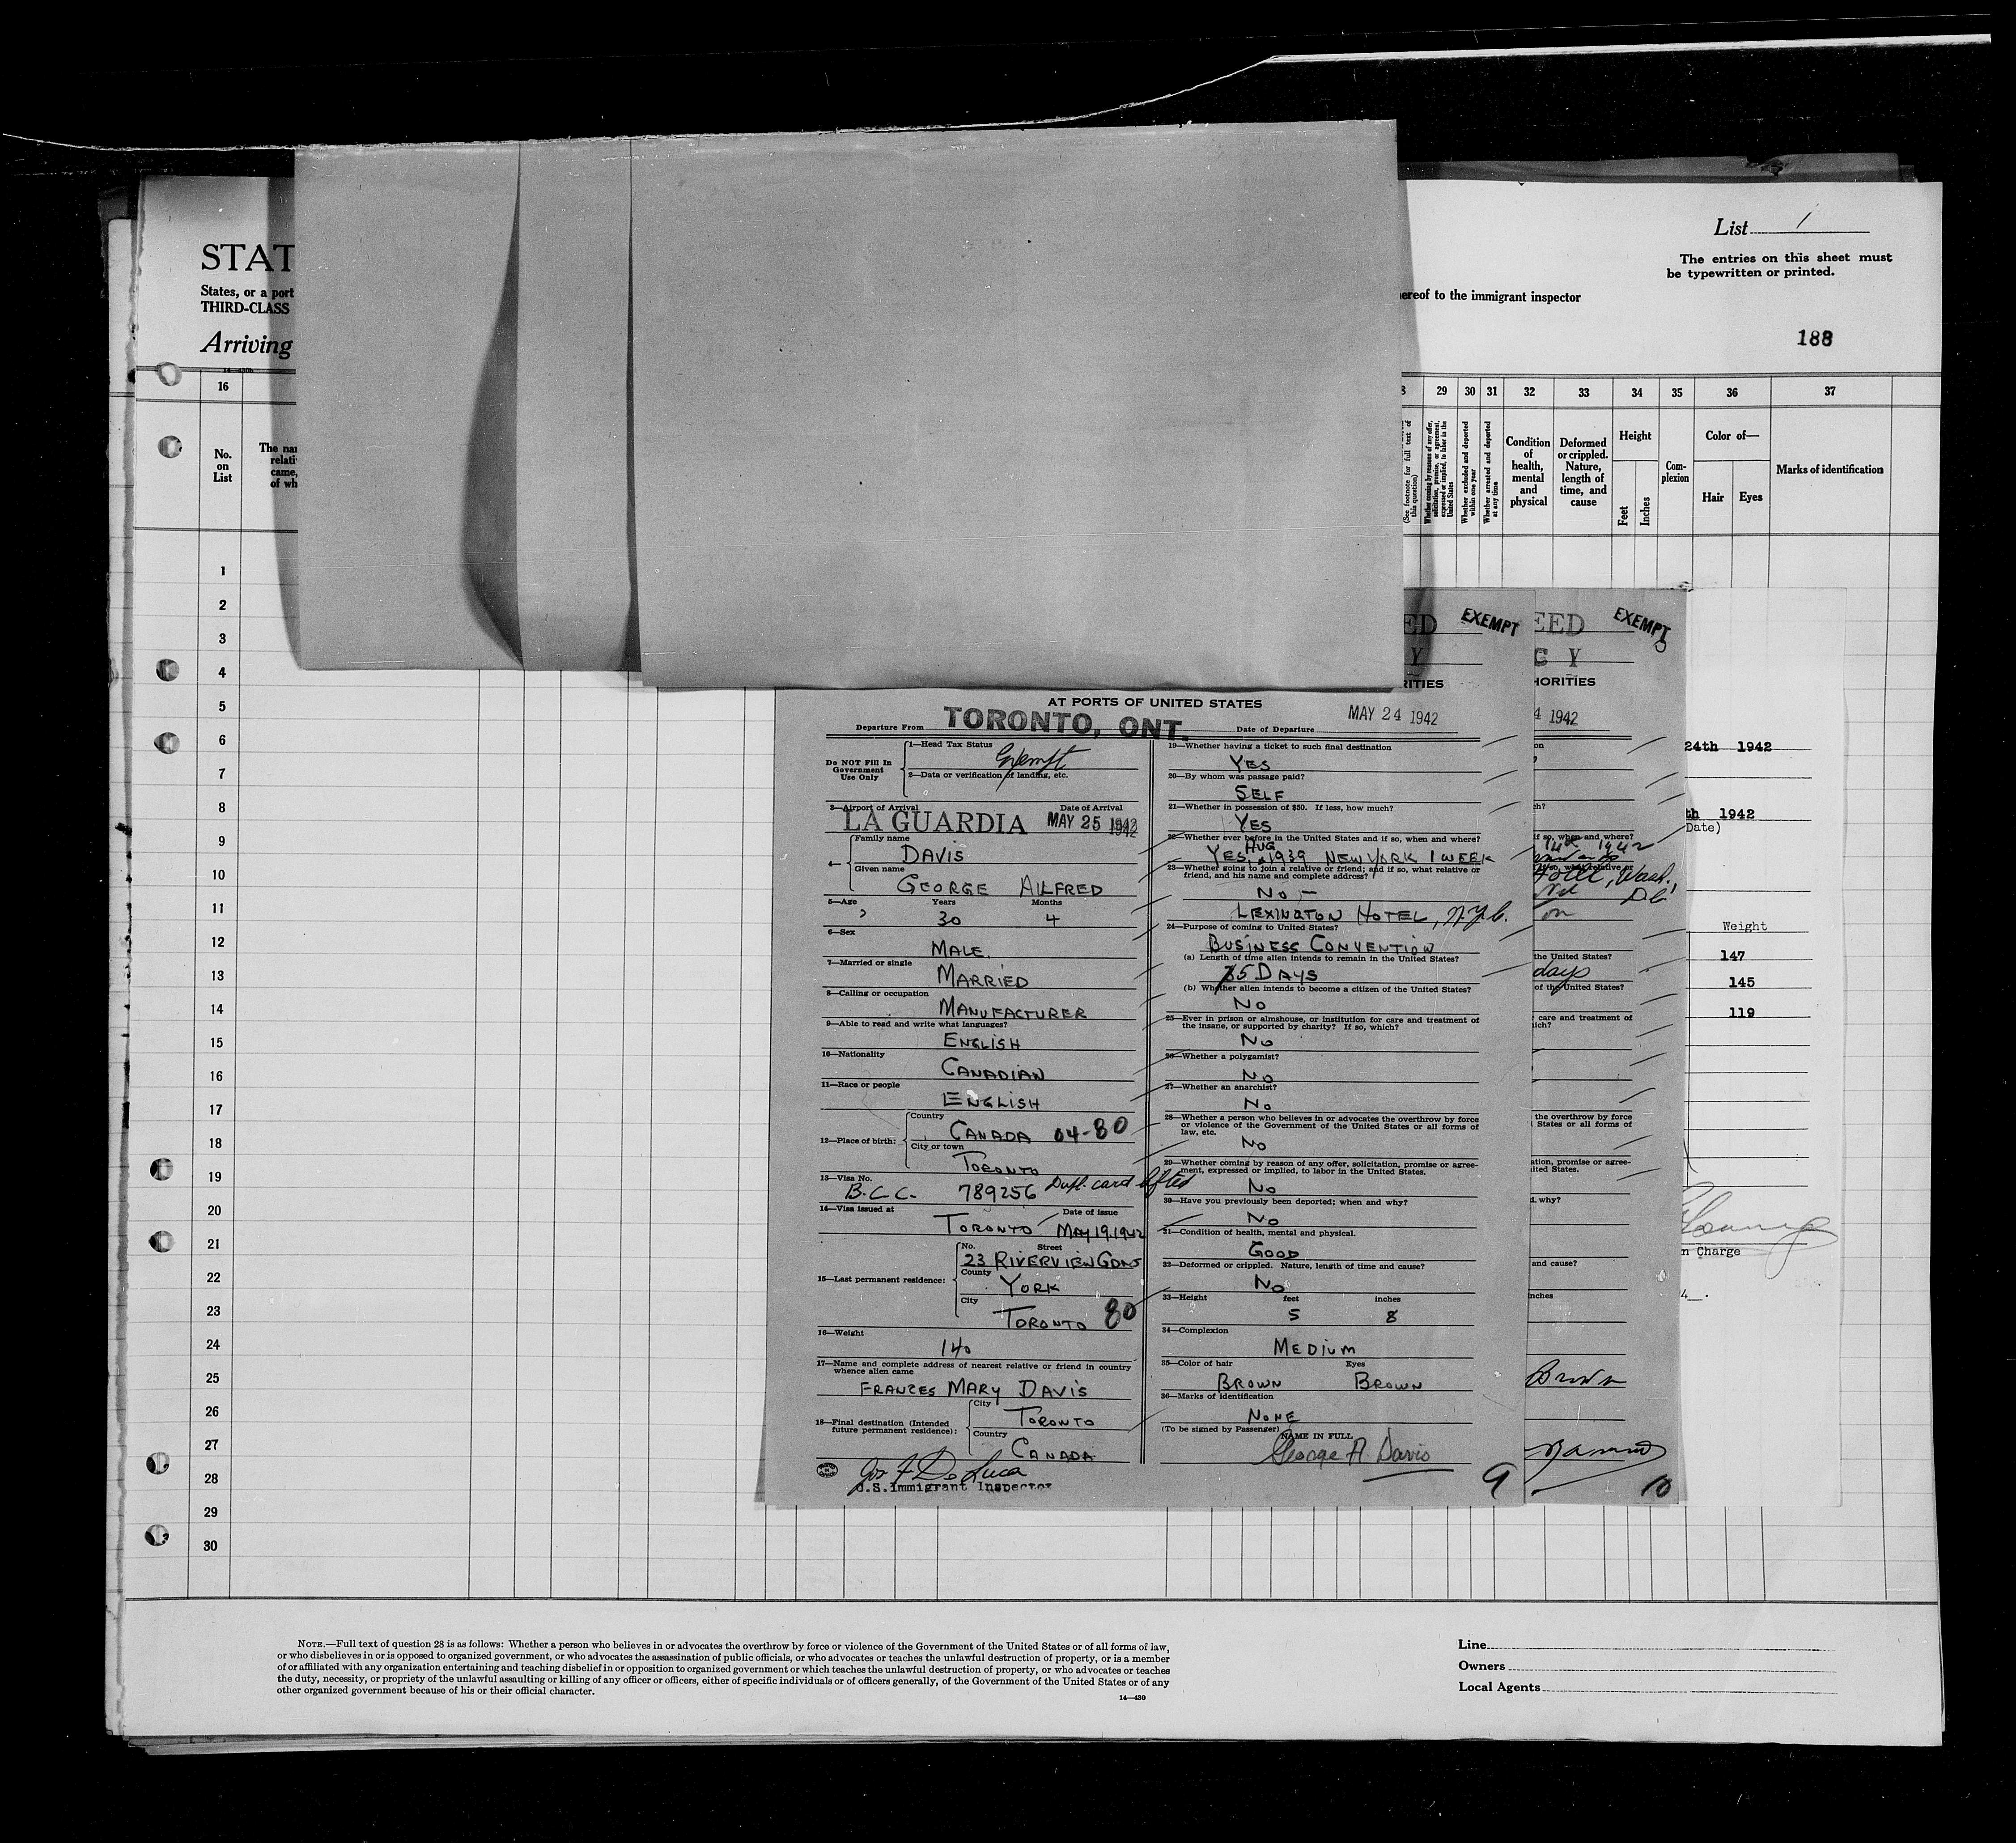 List 1
The entries on this sheet must
be typewritten or printed.
STAT
States, or a port
THIRD-CLASS
ereof to the immigrant inspector
Arriving
188
16
29 30 31 32 33 34 35 36 37
No.
on
List
The nar
relati
came,
of wh
(See footnote for full text of
this question)
Whether coming by reasons of any offer,
solicitation, promise, or agreement,
expressed or implied, to labor in the
United States
Whether excluded and deported
within one year
Whether arrested and deported
at any time
Condition
of
health,
mental
and
physical
Deformed
or crippled.
Nature,
length of
time, and
cause
Height
Feet
Inches
Com-
plexion
Color of—
Hair
Eyes
Marks of identification
1
2
3
4
5
6
7
8
9
10
11
12
13
14
15
16
17
18
19
20
21
22
23
24
25
26
27
28
29
30
ED EXEMPT
Y
RITIES
AT PORTS OF UNITED STATES
Departure From TORONTO, ONT. Date of Departure MAY 24 1942
Do NOT Fill In
Government
Use Only
1—Head Tax Status
Exempt
2—Data or verification of landing, etc.
3—Airport of Arrival Date of Arrival
LA GUARDIA MAY 25 1942
4—
Family name
DAVIS
Given name
GEORGE ALFRED
5—Age Years Months
30 4
6—Sex
MALE.
7—Married or single
MARRIED
8—Calling or occupation
MANUFACTURER
9—Able to read and write what languages?
ENGLISH
10—Nationality
CANADIAN
11—Race or people
ENGLISH
12—Place of birth:
Country
CANADA 04-80
City or town
TORONTO
13—Visa No.
B.C.C. 789256 Dupl. card lifted
14—Visa issued at Date of issue
TORONTO MAY 19, 1942
15—Last permanent residence:
No. Street
23 RIVERVIEW GDNS
County
YORK
City
TORONTO 80
16—Weight
140
17—Name and complete address of nearest relative or friend in country
whence alien came
FRANCES MARY DAVIS
18—Final destination (Intended
future permanent residence):
City
TORONTO
Country
CANADA
Jos F De Luca
U.S. Immigrant Inspector
19—Whether having a ticket to such final destination
YES
20—By whom was passage paid?
SELF
21—Whether in possession of $50. If less, how much?
YES
22—Whether ever before in the United States and if so, when and where?
YES, AUG 1939 NEW YORK 1 WEEK
23—Whether going to join a relative or friend; and if so, what relative or
friend, and his name and complete address?
NO –
LEXINGTON HOTEL, N.Y.C.
24—Purpose of coming to United States?
BUSINESS CONVENTION
(a) Length of time alien intends to remain in the United States?
5 DAYS
(b) Whether alien intends to become a citizen of the United States?
NO
25—Ever in prison or almshouse, or institution for care and treatment of
the insane, or supported by charity? If so, which?
NO
26—Whether a polygamist?
NO
27—Whether an anarchist?
NO
28—Whether a person who believes in or advocates the overthrow by force
or violence of the Government of the United States or all forms of
law, etc.
NO
29—Whether coming by reason of any offer, solicitation, promise or agree-
ment, expressed or implied, to labor in the United States.
NO
30—Have you previously been deported; when and why?
NO
31—Condition of health, mental and physical.
GOOD
32—Deformed or crippled. Nature, length of time and cause?
NO
33—Height feet inches
5 8
34—Complexion
MEDIUM
35—Color of hair Eyes
BROWN BROWN
36—Marks of identification
NONE
(To be signed by Passenger)
NAME IN FULL
George A. Davis
9
EED EXEMPT
G Y
HORITIES
4 1942
on
ch?
if so, when and where?
14th 1942
so, what relative or
Hotel, Wash.,
D.C.
the United States?
days
of the United States?
care and treatment of
ich?
the overthrow by force
States or all forms of
ation, promise or agree-
ited States.
d. why?
and cause?
inches
Brown
10
24th 1942
th 1942
Date)
Weight
147
145
119
n Charge
4__.
NOTE.—Full text of question 28 is as follows: Whether a person who believes in or advocates the overthrow by force or violence of the Government of the United States or of all forms of law,
or who disbelieves in or is opposed to organized government, or who advocates the assassination of public officials, or who advocates or teaches the unlawful destruction of property, or is a member
of or affiliated with any organization entertaining and teaching disbelief in or opposition to organized government or which teaches the unlawful destruction of property, or who advocates or teaches
the duty, necessity, or propriety of the unlawful assaulting or killing of any officer or officers, either of specific individuals or of officers generally, of the Government of the United States or of any
other organized government because of his or their official character.
14—430
Line
Owners
Local Agents